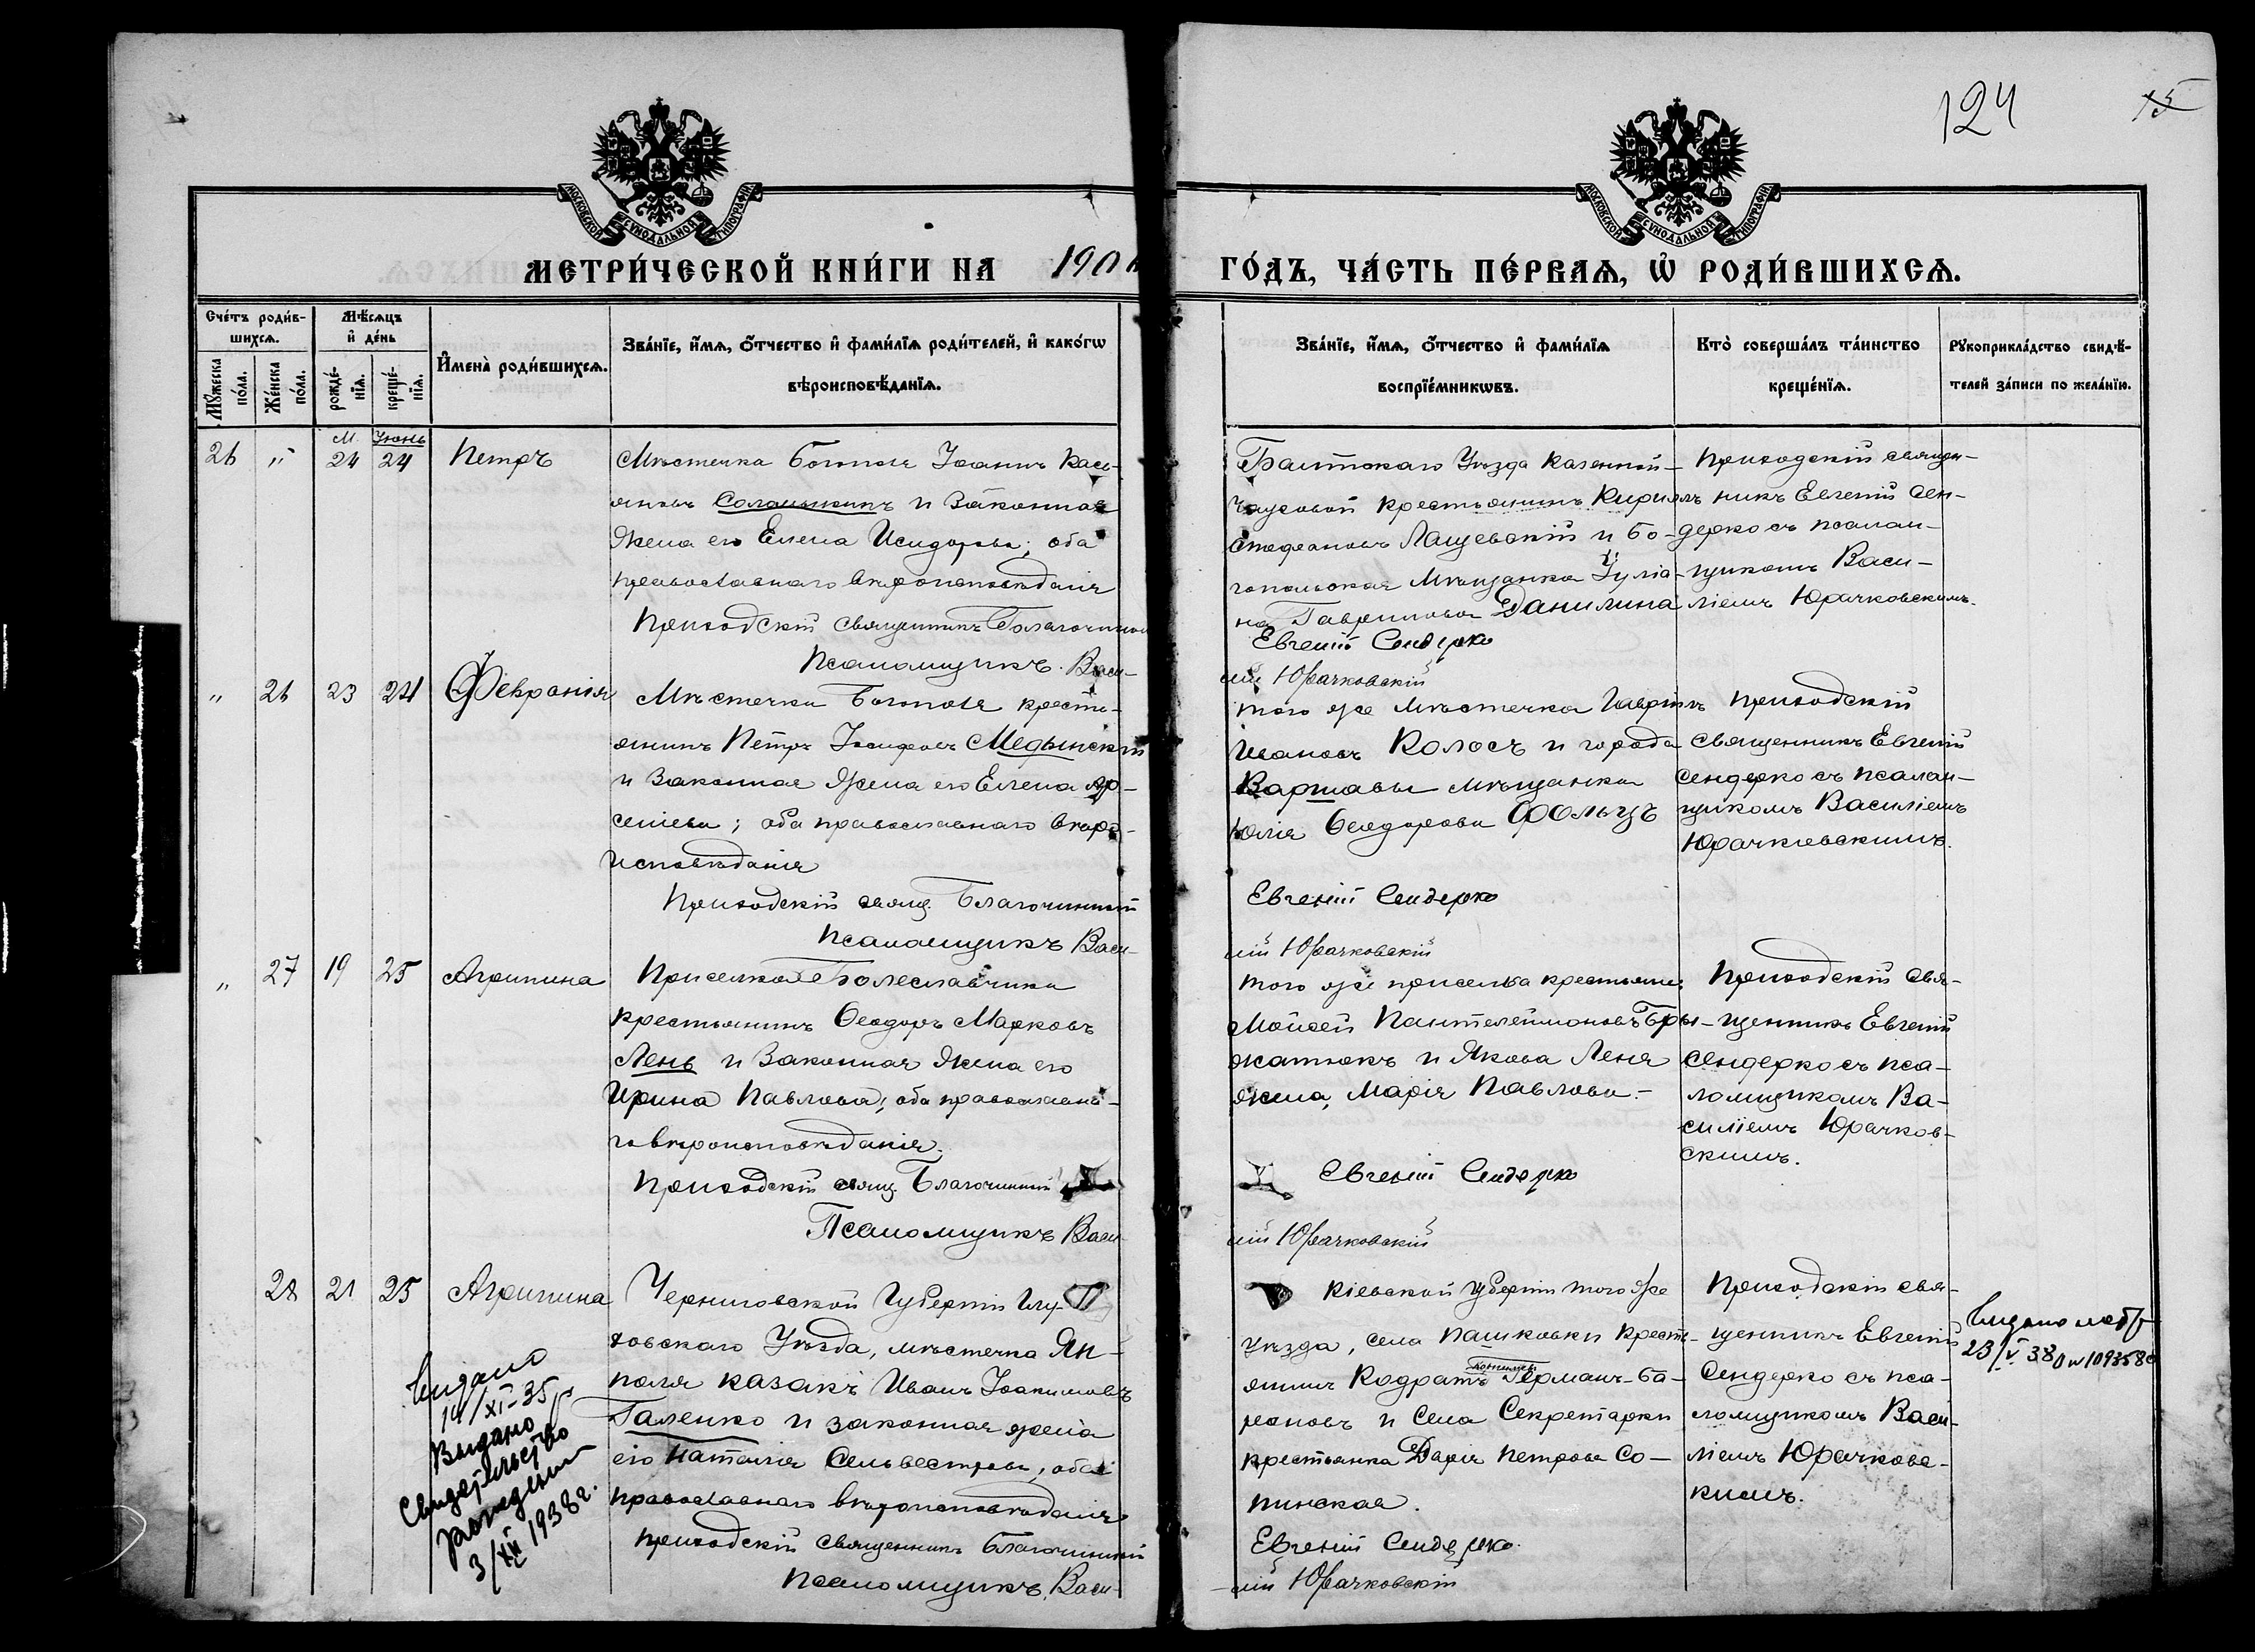 124
15
МОСКОВСКОЙ СѴНОДАЛЬНОЙ ТИПОГРАФІИ
МОСКОВСКОЙ СѴНОДАЛЬНОЙ ТИПОГРАФІИ
МЕТРИ́ЧЕСКОЙ КНИ́ГИ НА 190
ГО́ДЪ, ЧА́СТЬ ПЕ́РВАѦ, Ѡ҆ РОДИ́ВШИХСѦ.
Сче́тъ роди́в-
шихсѧ.
Мꙋ́жеска по́ла.
Же́нска по́ла.
Мѣ́сѧцъ
и҆ де́нь
рожде́-
нїѧ.
креще́-
нїѧ.
И҆мена̀ роди́вшихсѧ.
Зва́нїе, и҆́мѧ, ѻ҆́тчество и҆ фами́лїѧ роди́телей, и҆ како́гѡ
вѣроисповѣ́данїѧ.
Зва́нїе, и҆́мѧ, ѻ҆́тчество и҆ фами́лїѧ
воспрїе́мникѡвъ.
Кто̀ соверша́лъ та́инство
креще́нїѧ.
Рꙋкоприкла́дство свидѣ́-
телей за́писи по жела́нїю.
М. Іюнь
26 " 24 24 Петръ
Мѣстечка Богополя Іоаннъ Кась-
яновъ и Законная
Жена его Елена Исидорова; оба
православнаго вѣроисповѣданія
Приходскій священникъ Благочинный
Псаломщикъ Васи-
Балтскаго Уѣзда Казенной-
крестьянинъ Кириллъ
Стефановъ Лащевскій и Бо-
гопольская Мѣщанка Іуліа-
на Гаврилова Данилина
Евгеній Сендерко
лій Юрачковскій
Приходскій священ-
никъ Евгеній Сен-
дерко съ псалом-
щикомъ Васи-
ліемъ Юрачковскимъ.
" 26 23 24 Февронія
Мѣстечка Богополя кресть-
янинъ Петръ Іосифовъ Медынскій
и Законная Жена его Елена Ар-
сеніева; оба православнаго вѣро-
исповѣданія
Приходскій свящ. Благочинный
Псаломщикъ Васи-
того же Мѣстечка Гавріилъ
Ивановъ Колосъ и города
Варшавы мѣщанка
Юлія Ѳеодорова Фольцъ
Евгеній Сендерко
лій Юрачковскій
Приходскій
Священникъ Евгеній
Сендерко съ псалом-
щикомъ Василіемъ
Юрачковскимъ.
" 27 19 25 Агрипина
Приселка Болеславчика
крестьянинъ Ѳеодоръ Марковъ
Лень и Законная Жена его
Ирина Павлова; оба православна-
го вѣроисповѣданія.
Приходскій свящ. Благочинный
Псаломщикъ Васи-
того же приселка крестьяне:
Моисей Пантелеймоновъ Бры-
жатюкъ и Якова Леня
жена, Марія Павлова.-
Евгеній Сендерко
лій Юрачковскій
Приходскій Свя-
щенникъ Евгеній
Сендерко съ пса-
ломщикомъ Ва-
силіемъ Юрачков-
скимъ.
28 21 25 Агрипина
Черниговской Губерніи Глу-
ховскаго Уѣзда, мѣстечка Ян-
поля казакъ Иванъ Іоакимовъ
Галенко и законная жена
его Наталія Сельвестрова; оба
православнаго вѣроисповѣданія
Приходскій священникъ Благочинный
Псаломщикъ Васи-
Кіевской Губерніи того же
Уѣзда, села Пашковки Кресть-
янинъ Кодратъ Германъ-Ба-
и Села Секретарки
крестьянка Дарія Петрова Со-
пинская.
Евгеній Сендерко.
-лій Юрачковскій
Приходскій свя-
щенникъ Евгеній
Сендерко съ пса-
ломщикомъ Васи-
ліемъ Юрачковс-
кимъ.
Видано
14/XI-35
Выдано
Свидетельство
рождении
3/XII 1938г.
23/V 38